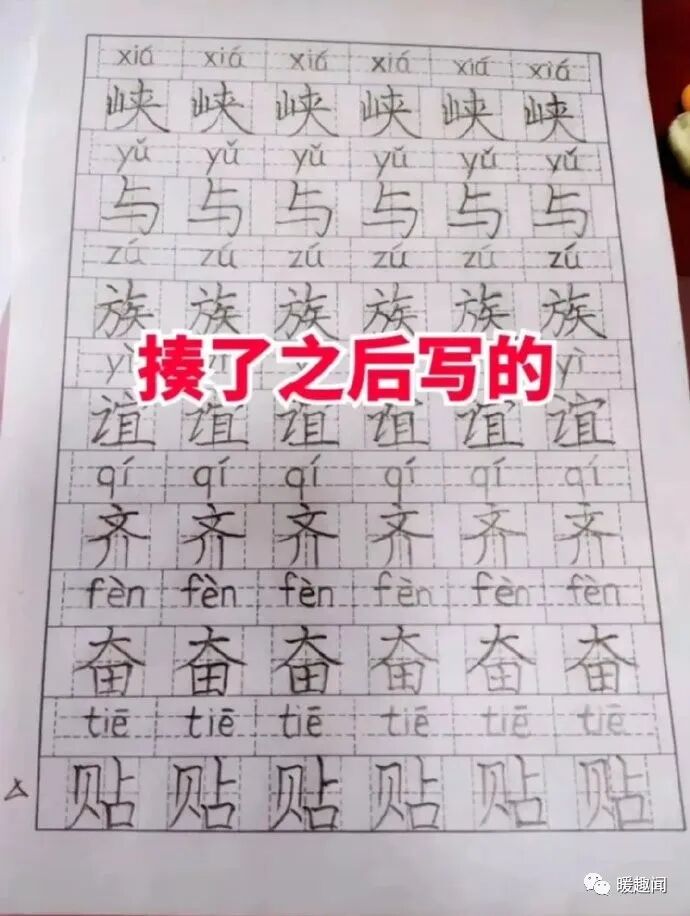 xiá xiá xiá xiá xiá xiá
峡 峡 峡 峡 峡 峡
yǔ yǔ yǔ yǔ yǔ yǔ
与 与 与 与 与 与
zú zú zú zú zú zú
族 族 族 族 族 族
yì yì
揍了之后写的
谊 谊 谊 谊 谊 谊
qí qí qí qí qí qí
齐 齐 齐 齐 齐 齐
fèn fèn fèn fèn fèn fèn
奋 奋 奋 奋 奋 奋
tiē tiē tiē tiē tiē tiē
贴 贴 贴 贴 贴 贴
暖趣闻